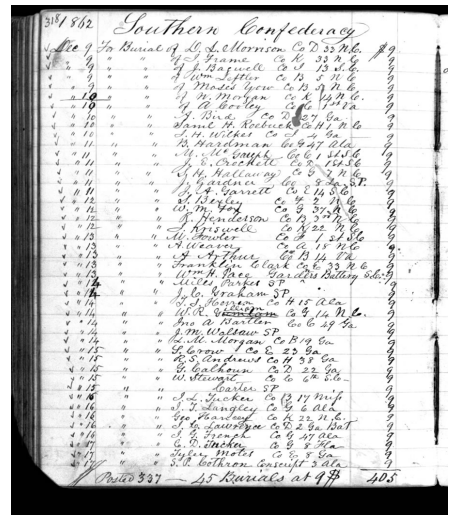 318/1862 Southern Confederacy
Dec 9 For Burial of D. L. Morrison Co D 33 N.C. $9
" 9 " " of J. Frame Co K 33 N.C. 9
" 9 " " of J. Bagwell Co 13 S.C. 9
" 9 " " of Wm Leftler Co B 5 N.C. 9
" 9 " " of Moses Yow Co B 5 N.C. 9
" 10 " " of W. Morgan Co K 14 N.C. 9
" 10 " " of A. Corley Co C 1st 9
" 10 " " A. Bird Co D 27 Ga 9
" 10 " " Saml H. Roebuck Co H 1 N.C. 9
" 10 " " J. H. Wilkes Co Ga 9
" 11 " " B. Hardman Co G 47 Ala 9
" 11 " " M. Co C 1st S.C. 9
" 11 " " J. E. Crockett Co 1st S.C. 9
" 11 " " J. H. Hallaway Co G 7 N.C. 9
" 11 " " J. Gardner Co 8 S.P. 9
" 11 " " J. A. Garrett Co E 14 S.C. 9
" 12 " " S. Bexley Co F 2 N.C. 9
" 12 " " W. M. Fox Co G 37 N.C. 9
" 12 " " R. Henderson Co B 3rd N.C. 9
" 12 " " J. Kriswell Co K 22 N.C. 9
" 13 " " M. Fowler Co F 1st S.C. 9
" 13 " " A. Weaver Co A 18 N.C. 9
" 13 " " A. Arthur Co B 14 Va 9
" 13 " " Franklin Clark Co E 33 N.C. 9
" 13 " " Wm H. Pace Battery S.C. 9
" 14 " " Miles Parker SP " 9
" 14 " " J. C. Graham SP 9
" 14 " " T. J. Co H 15 Ala 9
" 14 " " W. R. Co G 14 N.C. 9
" 14 " " Jno A Bartler Co C 49 Ga 9
" 14 " " J. M. SP 9
" 14 " " L. M. Morgan Co B 19 Ga 9
" 15 " " S. Crow Co E 23 Ga 9
" 15 " " R. S. Andrews Co H 38 Ga 9
" 15 " " G. Calhoun Co D 22 Ga 9
" 15 " " W. Stewart Co C 6th S.C. 9
" 15 " " Carter SP 9
" 15 " " J. L. Tucker Co B 17 Miss 9
" 16 " " J. T. Langley Co G 6 Ala 9
" 16 " " Geo Co K 22 N.C. 9
" 16 " " J. C. Lawrence Co D 2 Ga Bat 9
" " " J. Y. French Co G 47 Ala 9
" 17 " " E. D. Tucker Co G 8 Fla 9
" 17 " " Tyler Motes Co E 8 Ga 9
" 17 " " S. P. Cothron Conscript 3 Ala 9
Posted 337 — 45 Burials at 9$ 405